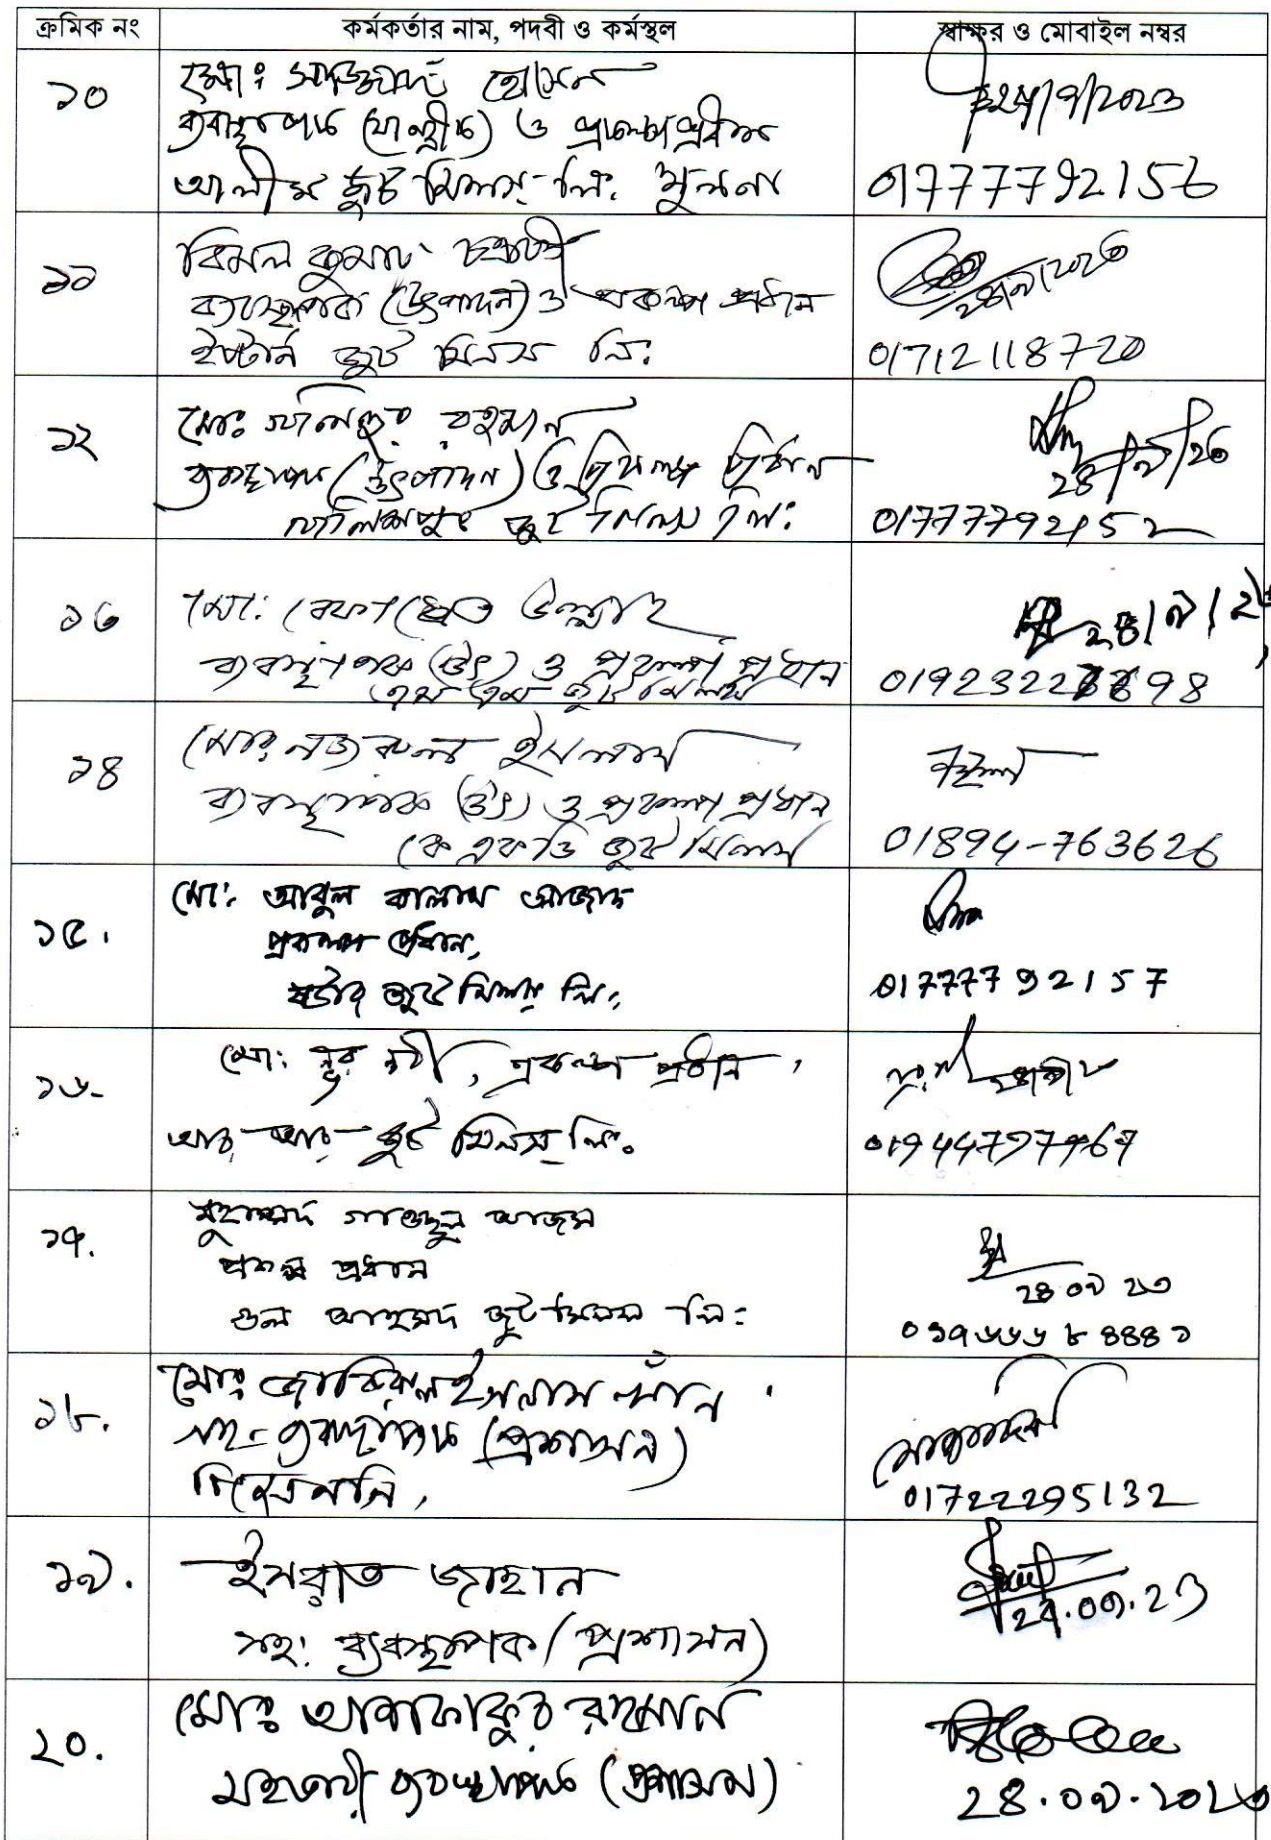 ক্রমিক নং কর্মকর্তার নাম, পদবী ও কর্মস্থল স্বাক্ষর ও মোবাইল নম্বর
১০ মোঃ সাজ্জাদ হোসেন
ব্যবস্থাপক (যান্ত্রিক) ও প্রকল্প প্রধান
আলীম জুট মিলস্ লিঃ খুলনা
01777792156
১১ বিমল কুমার
ব্যবস্থাপক (উৎপাদন) ও প্রকল্প প্রধান
ইস্টার্ন জুট মিলস লিঃ
01712118720
১২ মোঃ রহমান
ব্যবস্থাপক (উৎপাদন) ও প্রকল্প প্রধান
28/৯/২৩
জুট মিলস লিঃ 01777792152
১৩ মোঃ উল্লাহ
28/৯/২৩
ব্যবস্থাপক (উৎ) ও প্রকল্প প্রধান
এম এম জুট মিলস
১৪ মোঃ নজরুল ইসলাম
ব্যবস্থাপক (উৎ) ও প্রকল্প প্রধান
কে এফ ডি জুট মিলস 01894-763626
১৫. মো: আবুল কালাম আজাদ
প্রকল্প প্রধান,
ষ্টার জুট মিলস লি:
01777792157
১৬- মো: নূর নবী, প্রকল্প প্রধান,
আর, আর, জুট মিলস্ লিঃ
১৭. মুহাম্মদ গাউছুল আজম
প্রকল্প প্রধান 28.0৯.২৩
গুল আহমদ জুট মিলস লি:
0১৭৬৬৬৮৪৪৪১
১৮. মোঃ ইসলাম খাঁন
সহ- ব্যবস্থাপক (প্রশাসন)
01722295132
১৯. ইসরাত জাহান
সহ: ব্যবস্থাপক (প্রশাসন)
২0. মোঃ রহমান
সহকারী ব্যবস্থাপক (প্রশাসন) 28.0৯.২0২৩